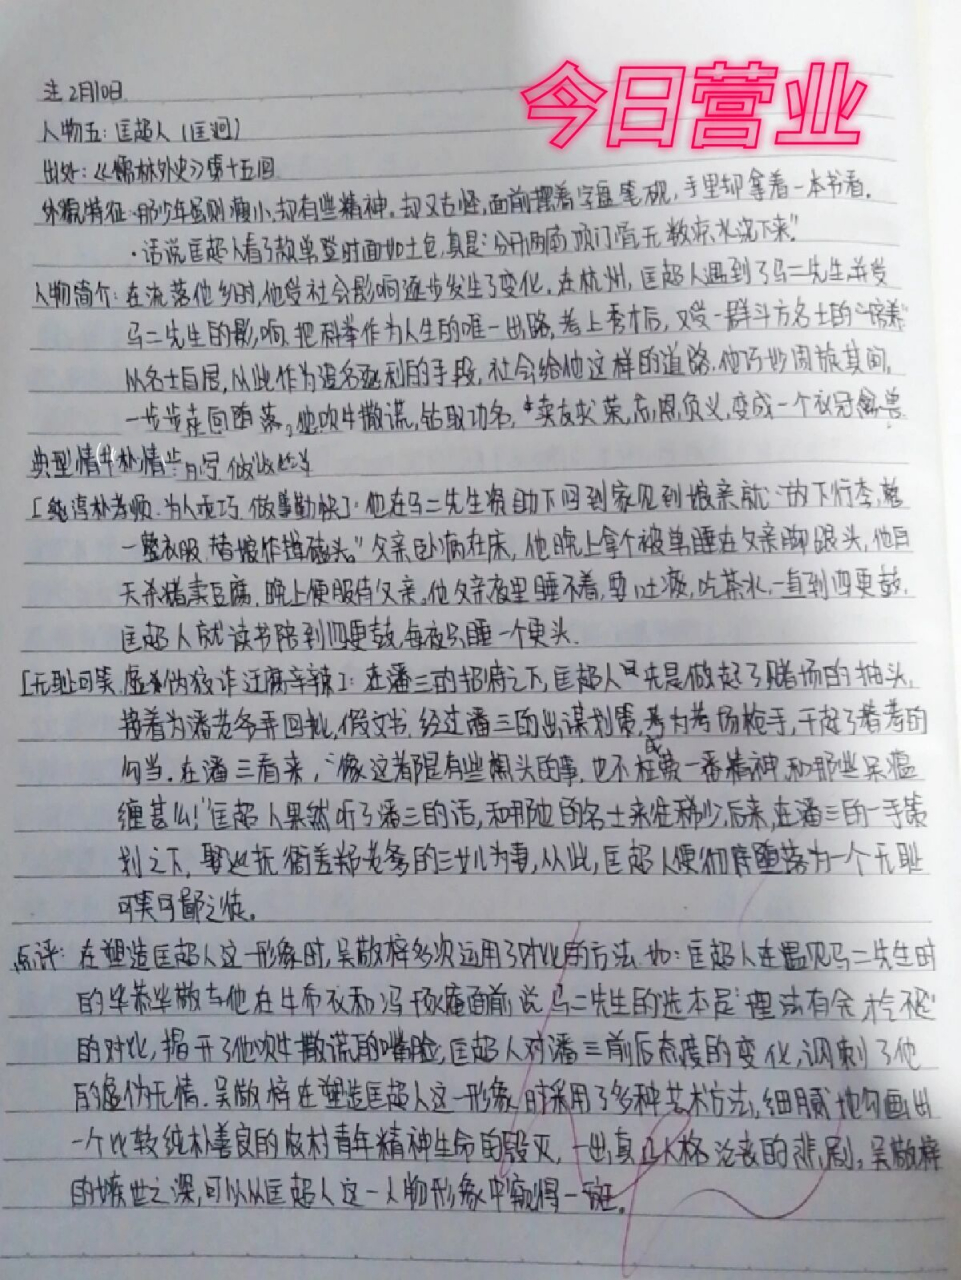 今日营业
注 2月10日
人物五：匡超人（匡迥）
出处：《儒林外史》第十五回
外貌特征：那少年虽则瘦小，却有些精神，却又古怪，面前摆着字盘笔砚，手里却拿着一本书看。
·话说匡超人看了款单登时面如土色，真是“分开两扇顶门骨，无数凉冰浇下来”
人物简介：在流落他乡时，他受社会影响逐步发生了变化，在杭州，匡超人遇到了马二先生并受
马二先生的影响，把科举作为人生的唯一出路，考上秀才后，又受一群斗方名士的“培养”
以名士自居，从此作为追名逐利的手段，社会给他这样的道路，他巧妙周旋其间，
一步步走向堕落。他吹牛撒谎，钻取功名，卖友求荣，忘恩负义，变成一个衣冠禽兽
典型情
[纯淳朴孝顺，为人乖巧，做事勤快]：他在马二先生资助下回到家见到娘亲就“放下行李，整
一整衣服，替娘作揖磕头。”父亲卧病在床，他晚上拿个被单睡在父亲脚跟头，他白
天杀猪卖豆腐，晚上便服侍父亲。他父亲夜里睡不着，要吐痰，吃茶水，一直到四更鼓，
匡超人就读书陪到四更鼓，每夜只睡一个更头。
[无耻可笑，虚 伪狡诈 辛辣]：在潘三的招府之下，匡超人先是做起了赌场的抽头，
接着为潘老爷弄回批，假文书，经过潘三的出谋划策，成为考场枪手，干起了替考的
勾当。在潘三看来，“像这都是有些想头的事，也不枉费一番精神，和那些呆瘟
缠甚么！”匡超人果然听了潘三的话，和那边的名士来往稀少。后来，在潘三的一手策
划之下，娶了抚衙差郑老爹的三女儿为妻，从此，匡超人便彻底堕落为一个无耻
可笑可鄙之徒。
点评：在塑造匡超人这一形象时，吴敬梓多次运用了对比的方法。如：匡超人在遇见马二先生时
的毕恭毕敬与他在牛布衣和冯琢庵面前说马二先生的选本是“理法有余，才气不足”
的对比，揭开了他吹牛撒谎的嘴脸，匡超人对潘三前后态度的变化，讽刺了他
的虚伪无情。吴敬梓在塑造匡超人这一形象时采用了多种艺术方法，细腻地勾画出
一个比较纯朴善良的农村青年精神生命的毁灭，一出真正人格沦丧的悲剧，吴敬梓
的嫉世之深，可以从匡超人这一人物形象中窥得一斑。